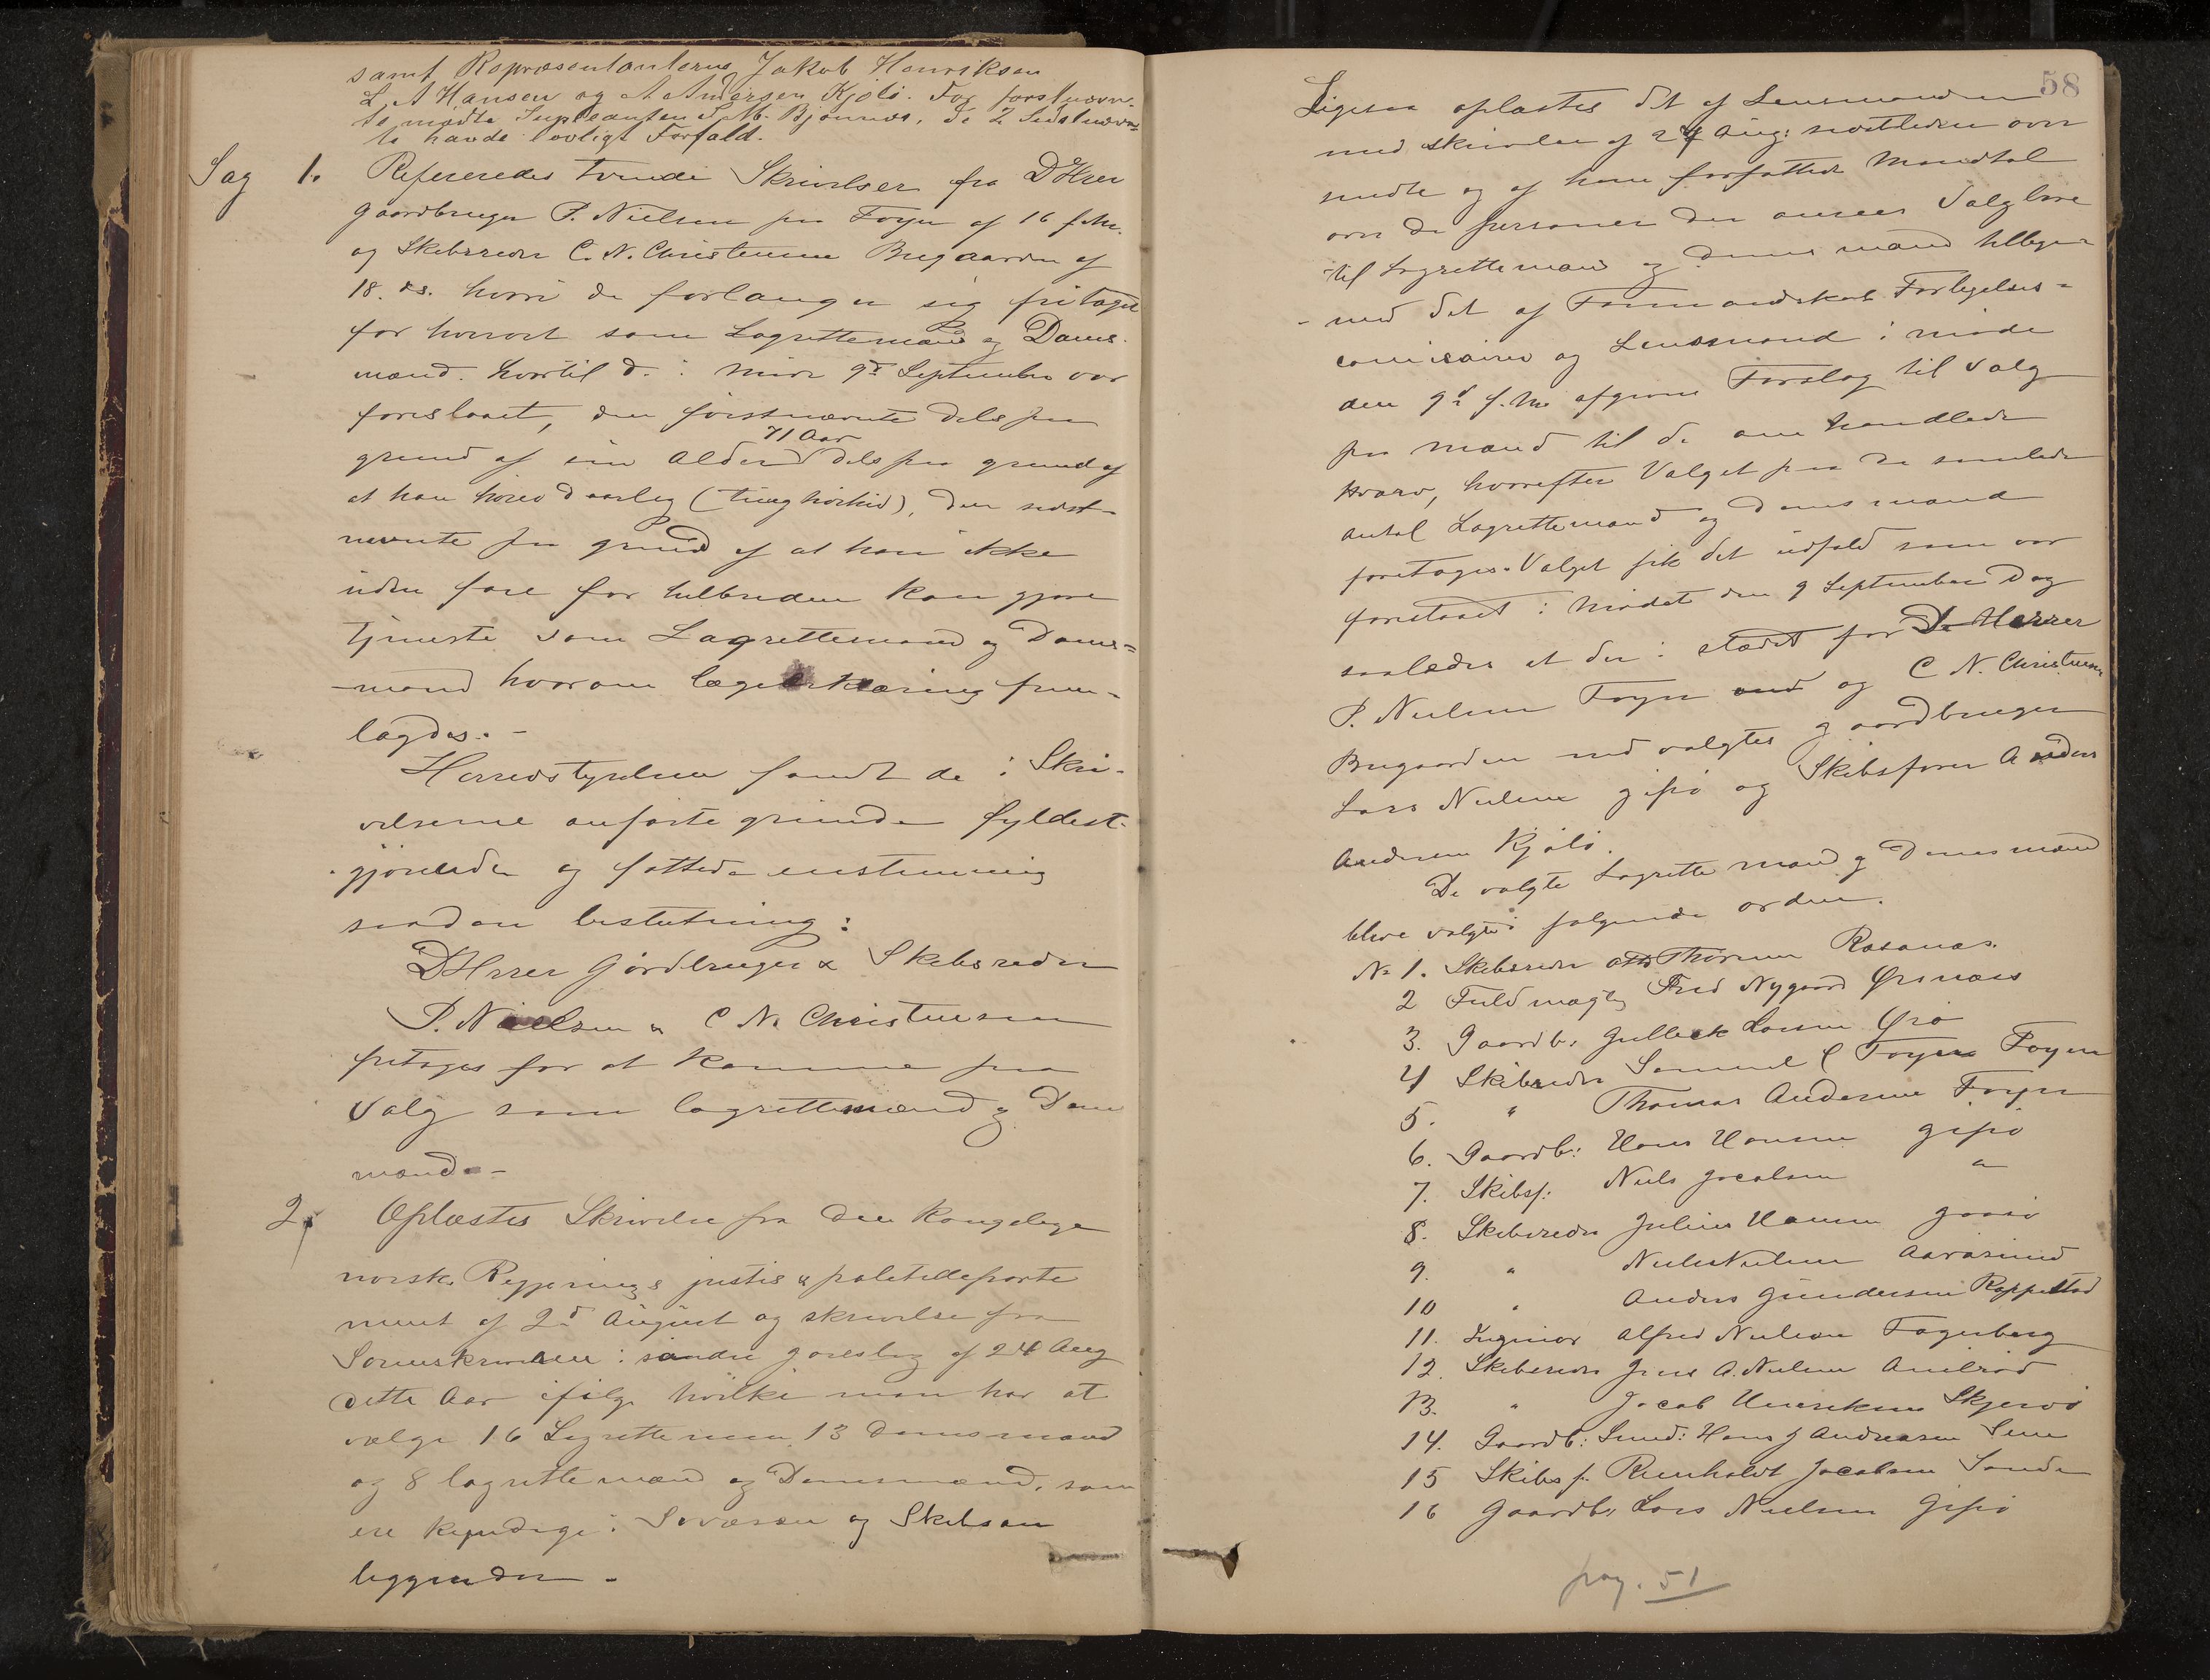 samt Repræsentanterne Jakob Henriksen
L. A Hansen og A Andersen Kjøle. For førstnævn-
te mødte Supleanten S. M. Bjønnes, de 2 Sidstnævn-
te havde lovligt Forfald.
Sag 1. Refereredes tvende Skrivelser fra DHrer
gaardbruger P. Nielsen paa Føyn af 16 f.M.
og Skibsreder C. N. Christensen Brygaarden af
18. ds. hvori de forlanger sig fritaget
for hvervet som Lagrettemand og Doms-
mænd. hvortil de i møde 9de September var
foreslaaet, den førstnævnte dels paa
71 Aar
grund af sin Alder dels paa grund af
at han hører daarlig (tunghørhed), den sidst-
nævnte paa grund af at han ikke
uden fare for helbreden kan gjøre
tjeneste som Lagrettemand og Doms=
-mand hvorom lægeerklæring frem-
lagdes. -
Herredstyrelsen fandt de i Skri-
velserne anførte grunde fyldest-
gjørende og fattede enstemmig
saadan beslutning:
DHrrer Gårdbruger & Skibsreder
P. Nielsen & C N. Christensen
fritages for at komme paa
Valg som lagrettemænd og Dom
mænd. -
2. Oplæstes Skrivelse fra den Kongelige
norske Regjerings justis & politideparte
ment af 2d August og skrivelse fra
Sorenskriveren i søndre Jarlsberg af 24 Aug
dette Aar ifølge hvilke man har at
vælge 16 Lagrettemæn, 13 Domsmænd
og 8 lagrettemænd og Domsmænd, som
ere kyndige i Søvæsen og Skibsan
liggender -
58
Ligesaa oplæstes det af Lensmanden
med skrivelse af 24 Aug: sidstleden over
sendte og af ham forfattede Mandtal
over de personer der ansees Valgbare
til Lagrettemænd og Domsmænd tilligemed
- med det af Formandskab Forligelses=
comisairer og Lensmand i møde
den 9d f. M. afgivne Forslag til Valg
paa mænd til de omhandlede
hverv, hvorefter Valget paa de samlede
antal Lagrettemænd og Domsmænd
foretages. Valget fik det udfald som var
foreslaaet i mødet den 9 September dog
saaledes at der i stedet for De Herrer
P. Nielsen Føyn og C N. Christensen
Brygaarden ved valgtes gaardbruger
Lars Nielsen Gipø og Skibsfører Anders
Andersen Kjøle.
De valgte Lagrettemænd og Domsmænd
bleve valgte i følgende orden.
No 1. Skibsreder Otto Thoresen Rosanæs.
2 Fuldmægtig Fred Nygaard Ørsnæs
3. Gaardb. Gulleck Larsen Ørø
4 Skibsreder Samuel C Foyen Foyen
5. " Thomas Andersen Foyn
6. Gaardb: Hans Hansen Gipø
7. Skibsf: Niels Jacobsen "
8. Skibsreder Julius Hansen Gaasø
9. " Niels Nielsen Aarøsund
10 " Anders Gundersen Roppestad
11. Ingeniør Alfred Nielsen Fagerberg
12. Skibsreder Jens A. Nielsen Anilrød
13. " Jacob Henriksen Skjervø
14. Gaardb: Smed: Hans J Andreasen Sem
15 Skibsf. Reinholdt Jacobsen Sande
16 Gaardb. Lars Nielsen Gipø
pag. 51